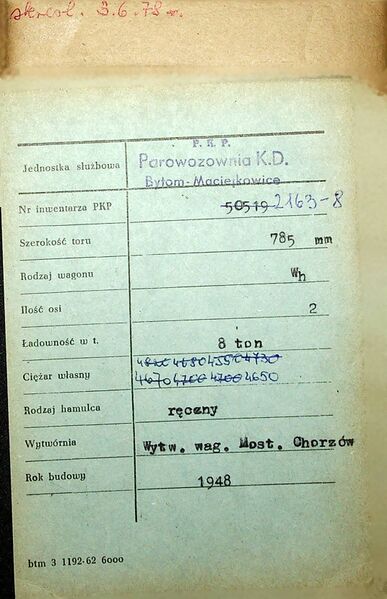 skreśl. 3.6.78 r.
P. K. P.
Jednostka służbowa Parowozownia K.D.
Bytom-Maciejkowice
Nr inwentarza PKP 50519 2163-8
Szerokość toru 785 mm
Rodzaj wagonu Wh
Ilość osi 2
Ładowność w t. 8 ton
4680 4590 4730
Ciężar własny 4670 4700 4700 4650
Rodzaj hamulca ręczny
Wytwórnia Wytw. wag. Most. Chorzów
Rok budowy 1948
btm 3 1192-62 6000